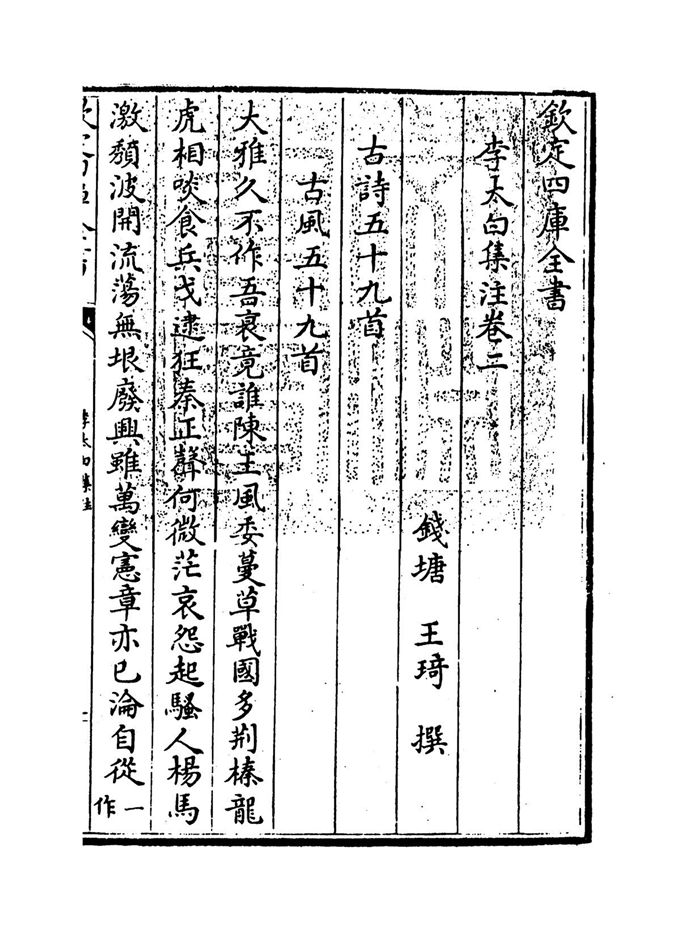 欽定四庫全書
李太白集注卷二
錢塘　王琦　撰
古詩五十九首
古風五十九首
大雅久不作吾衰竟誰陳王風委蔓草戰國多荆榛龍
虎相啖食兵戈逮狂秦正聲何微茫哀怨起騷人楊馬
激頽波開流蕩無垠廢興雖萬變憲章亦已淪自從一作
李太白集注